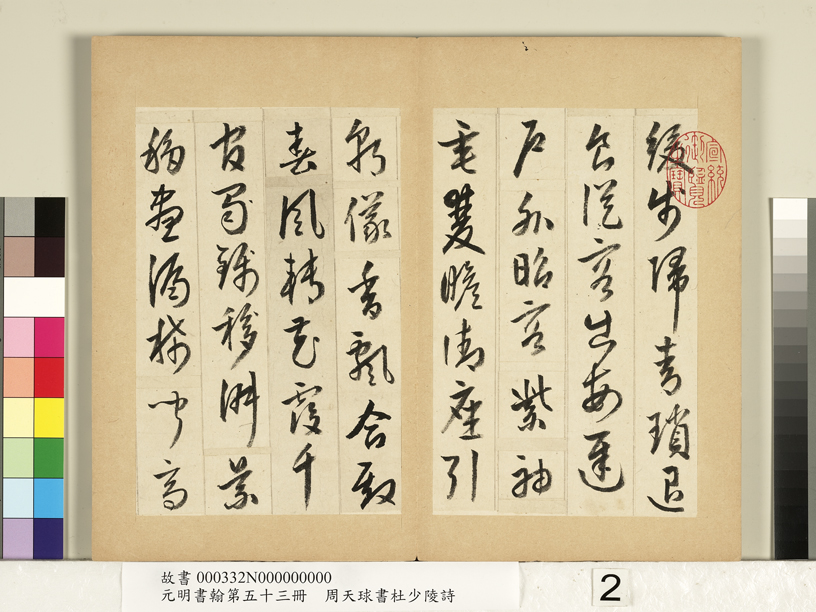 緩步歸青瑣退
食從容出每遲
戶外昭容紫袖
垂雙瞻御座引
朝儀香飄合殿
春風轉花覆千
官移淑景
移晝漏稀聞高
宣統御覽之寶
故書 000332N000000000
元明書翰第五十三冊　周天球書杜少陵詩
2